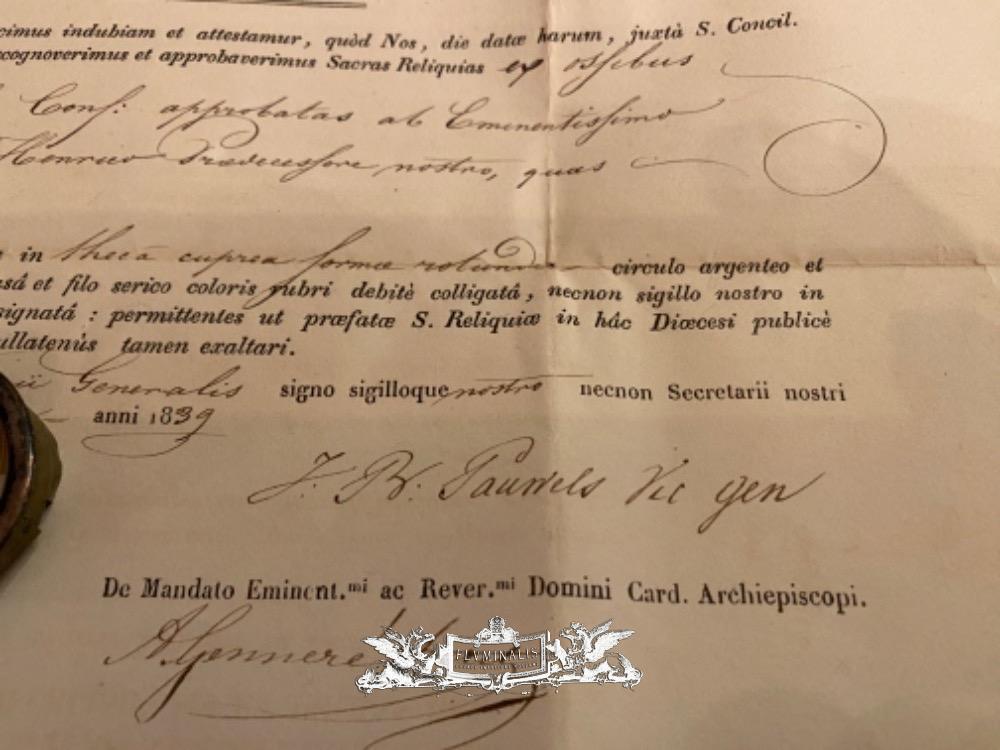 cimus indubiam et attestamur, quòd Nos, die datæ harum, juxtà S. Concil.
cognoverimus et approbaverimus Sacras Reliquias ex ossibus
Conf: approbatas ab Eminentissimo
Henrico Prædecessore nostro, quas
in thecâ cuprea formæ rotundæ circulo argenteo et
usâ et filo serico coloris rubri debitè colligatâ, necnon sigillo nostro in
signatâ : permittentes ut præfatæ S. Reliquiæ in hâc Diœcesi publicè
ullatenùs tamen exaltari.
ii Generalis signo sigilloque nostro necnon Secretarii nostri
anni 1839
J. B. Pauwels Vic gen
De Mandato Eminent.mi ac Rever.mi Domini Card. Archiepiscopi.
FLVMINALIS